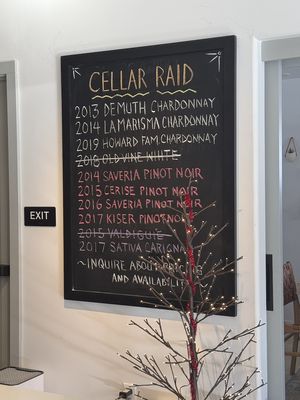 CELLAR RAID
2013 DEMUTH CHARDONNAY
2014 LA MARISMA CHARDONNAY
2019 HOWARD FAM. CHARDONNAY
2018 OLD VINE WHITE
2014 SAVERIA PINOT NOIR
2015 CERISE PINOT NOIR
2016 SAVERIA PINOT NOIR
2017 KISER PINOT NOIR
2015 VALDIGUIE
2017 SATIVA CARIGNAN
~INQUIRE ABOUT
AND AVAILABILITY
EXIT